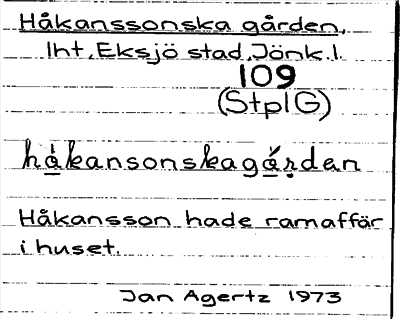 Håkanssonska gården,
Iht, Eksjö stad, Jönk. l.
109
(StplG)
håkansonskagárdan
Håkansson hade ramaffär
i huset.
Jan Agertz 1973